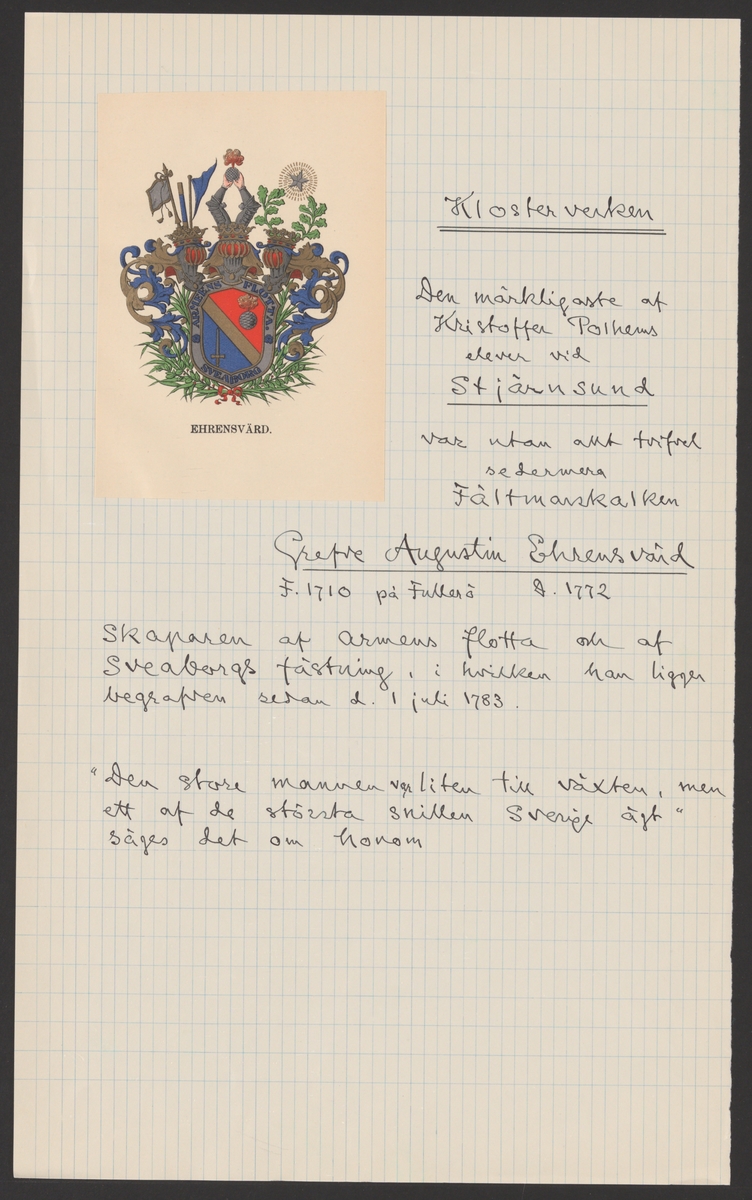 Klosterverken
ARMEENS FLOTTA.
SVEABORG
EHRENSVÄRD.
Den märkligaste af
Kristoffer Polhems
elever vid
Stjärnsund
var utan allt tvifvel
sedermera
Fältmarskalken
Grefve Augustin Ehrensvärd
F. 1710 på Fullerö D. 1772
Skaparen af armens flotta och af
Sveaborgs fästning, i hvilken han ligger
begrafven sedan d. 1 juli 1783.
"Den store mannen var liten till växten, men
ett af de största snillen Sverige ägt"
säges det om honom